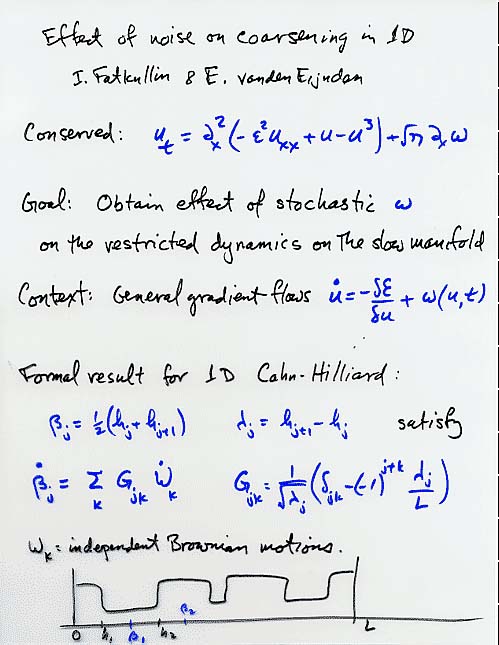 Effect of noise on coarsening in 1D
I. Fatkullin & E. vanden Eijnden
Conserved: u_t = ∂_x^2(-ε^2 u_xx + u - u^3) + √η ∂_x ω
Goal: Obtain effect of stochastic ω
on the restricted dynamics on the slow manifold
Context: General gradient flows u̇ = -δE/δu + ω(u,t)
Formal result for 1D Cahn-Hilliard:
β_j = ½(h_j + h_{j+1}) λ_j = h_{j+1} - h_j satisfy
β̇_j = Σ_k G_jk Ẇ_k G_jk = 1/√λ_j (δ_jk - (-1)^{j+k} λ_j/L)
W_k = independent Brownian motions.
0 h_1 β_1 h_2 β_2 L